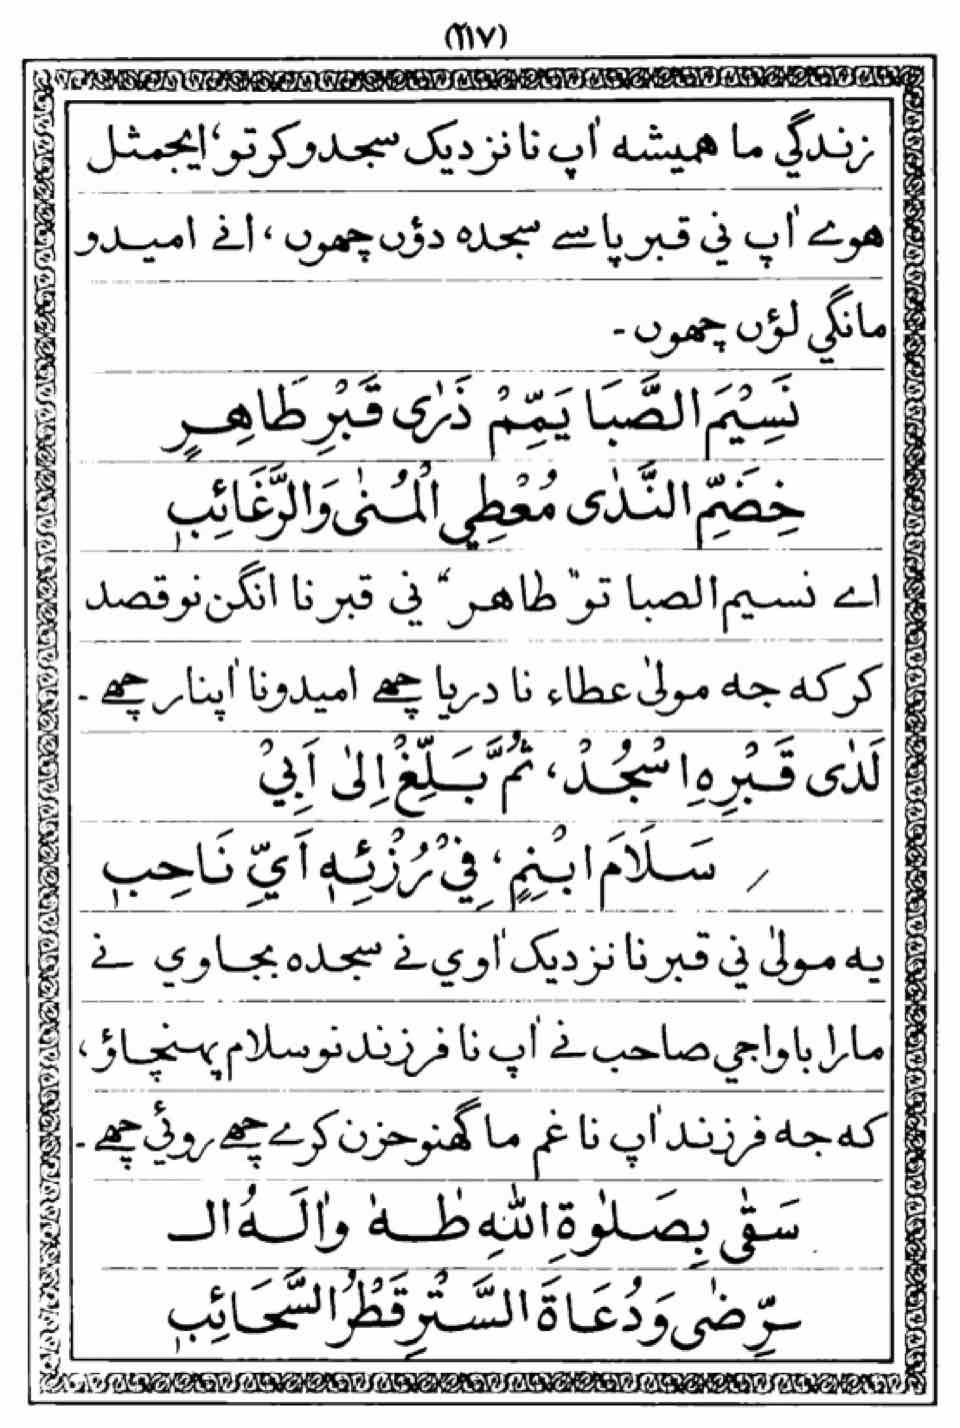 (۲۱۷)
زندگي ما هميشه اٰپ نا نزديک سجدو کرتو، ايجمثل
هوے اٰپ ني قبر پاسے سجده دؤں چھوں، انے اميدو
مانگي لؤں چھوں۔
نَسِيْمَ الصَّبَا يَمِّمْ ذَرٰى قَبْرِ طَاهِرٍ
خِضَمِّ النَّدٰى مُعْطِي الْمُنٰى وَالرَّغَائِبِ
اے نسيم الصبا تو "طاهر" ني قبر نا انگن نو قصد
کر که جه مولىٰ عطاء نا دريا چھے اميدو نا اٰپنار چھے۔
لَدٰى قَبْرِهِ اسْجُدْ، ثُمَّ بَلِّغْ اِلىٰ اَبِيْ
؍ سَلَامَ ابْنِمٍ، فِيْ رُزْئِهٖ اَيِّ نَاحِبٖ
يه مولىٰ ني قبر نا نزديک اٰوي نے سجده بجاوي نے
مارا باواجي صاحب نے اٰپ نا فرزند نو سلام پهنچاؤ،
که جه فرزند اٰپ نا غم ما گھنو حزن کرے چھے روئي چھے۔
سَقٰى بِصَلٰوةِ اللهِ طٰهٰ وَاٰلَهُ الـ
ـرِّضٰى وَدُعَاةَ السَّتْرِ قَطْرُ السَّحَائِبِ